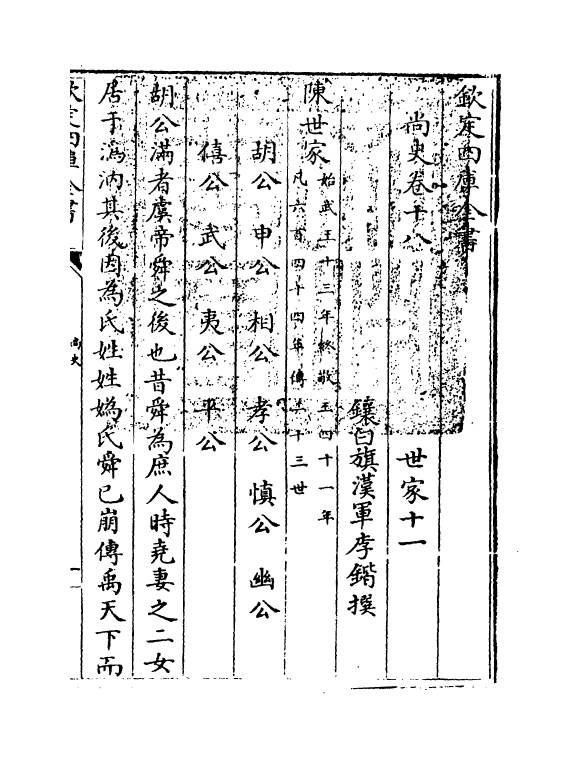 欽定四庫全書
尚史卷十八　世家十一
鑲白旗漢軍李鍇撰
陳世家始武王十三年終敬王四十一年
凡六百四十四年傳二十三世
胡公　申公　相公　孝公　慎公　幽公
僖公　武公　夷公　平公
胡公滿者虞帝舜之後也昔舜為庶人時堯妻之二女
居于溈汭其後因為氏姓姓媯氏舜已崩傳禹天下而
欽定四庫全書
尚史
一